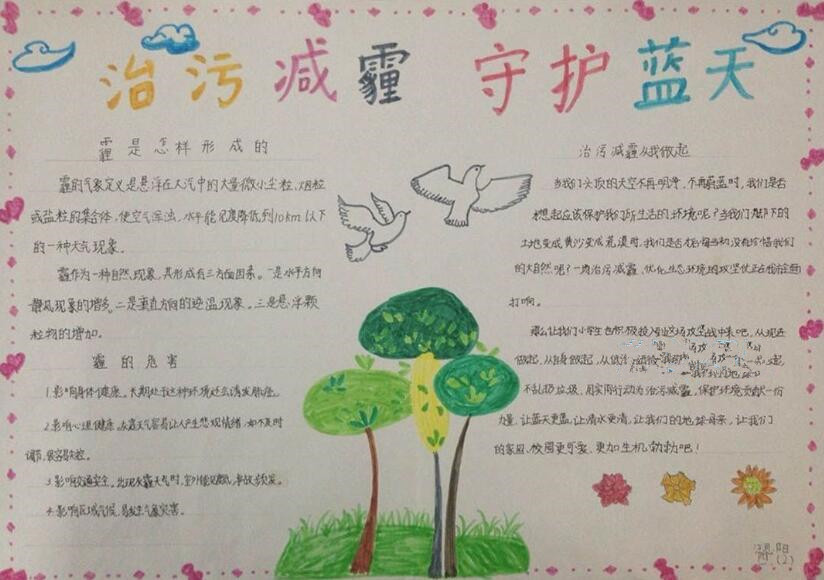 治污减霾 守护蓝天
霾是怎样形成的
霾的气象定义是悬浮在大气中的大量微小尘粒、烟粒
或盐粒的集合体，使空气浑浊，水平能见度降低到10km以下
的一种天气现象。
霾作为一种自然现象，其形成有三方面因素。一是水平方向
静风现象的增多。二是垂直方向的逆温现象。三是悬浮颗
粒物的增加。
霾的危害
1.影响身体健康。长期处于这种环境还会诱发肺癌。
2.影响心理健康。灰霾天气容易让人产生悲观情绪，如不及时
调节，很容易失控。
3.影响交通安全。出现灰霾天气时，室外能见度低，事故频发。
4.影响区域气候，易发生气象灾害。
治污减霾从我做起
当我们头顶的天空不再明净，不再蔚蓝时，我们是否
想起应该保护我们所生活的环境呢？当我们脚下的
土地变成黄沙变成荒漠时，我们是否
的大自然呢？一场治污减霾，优化生态环境的攻坚仗正在我市全面
打响。
那么让我们小学生也积极投入到这场攻坚战中来吧，从现在
做起，从自身做起，从
不乱扔垃圾，用实际行动为治污减霾，保护环境贡献一份
力量，让蓝天更蓝，让清水更清，让我们的地球母亲，让我们
的家园、校园更可爱，更加生机勃勃吧！